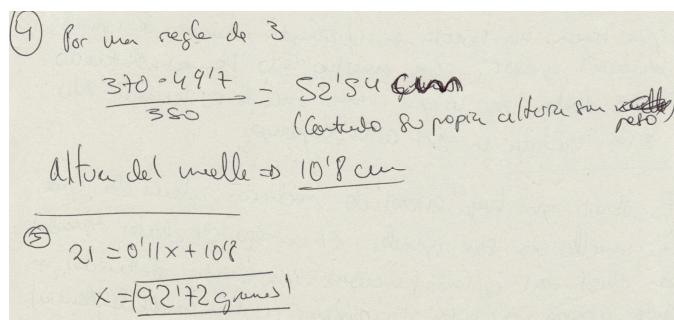 4 Por una regla de 3
370 · 49'7 / 350 = 52'54
(Contando su propia altura sin peso)
Altura del muelle => 10'8 cm
5
21 = 0'11x + 10'8
x = 92'72 gramos!